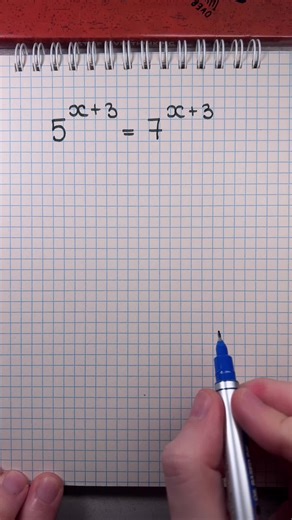 OVER
5^{x+3} = 7^{x+3}